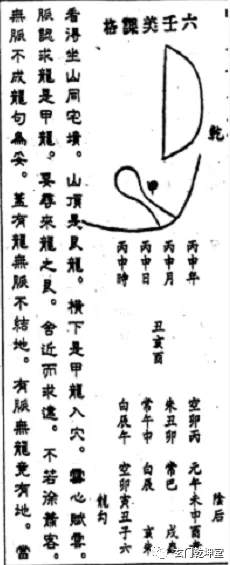 六壬美課格
乾
甲
丙申年
丙申月
丙申日
丙申時
丑亥酉
陰后
空卯丙
朱丑卯
常午申
白辰午
常巳
白辰
戌
亥
空卯寅丑子六
龍勾
看得坐山同宅墳。山頂是艮龍。橫下是甲龍入穴。雲心賦雲。
脈認求龍是甲龍。要尋來龍之艮。舍近而求遠。不若徐蕭客。
無脈不成龍句為妥。蓋有龍無脈不結地。有脈無龍竟有地。當
玄门乾坤堂